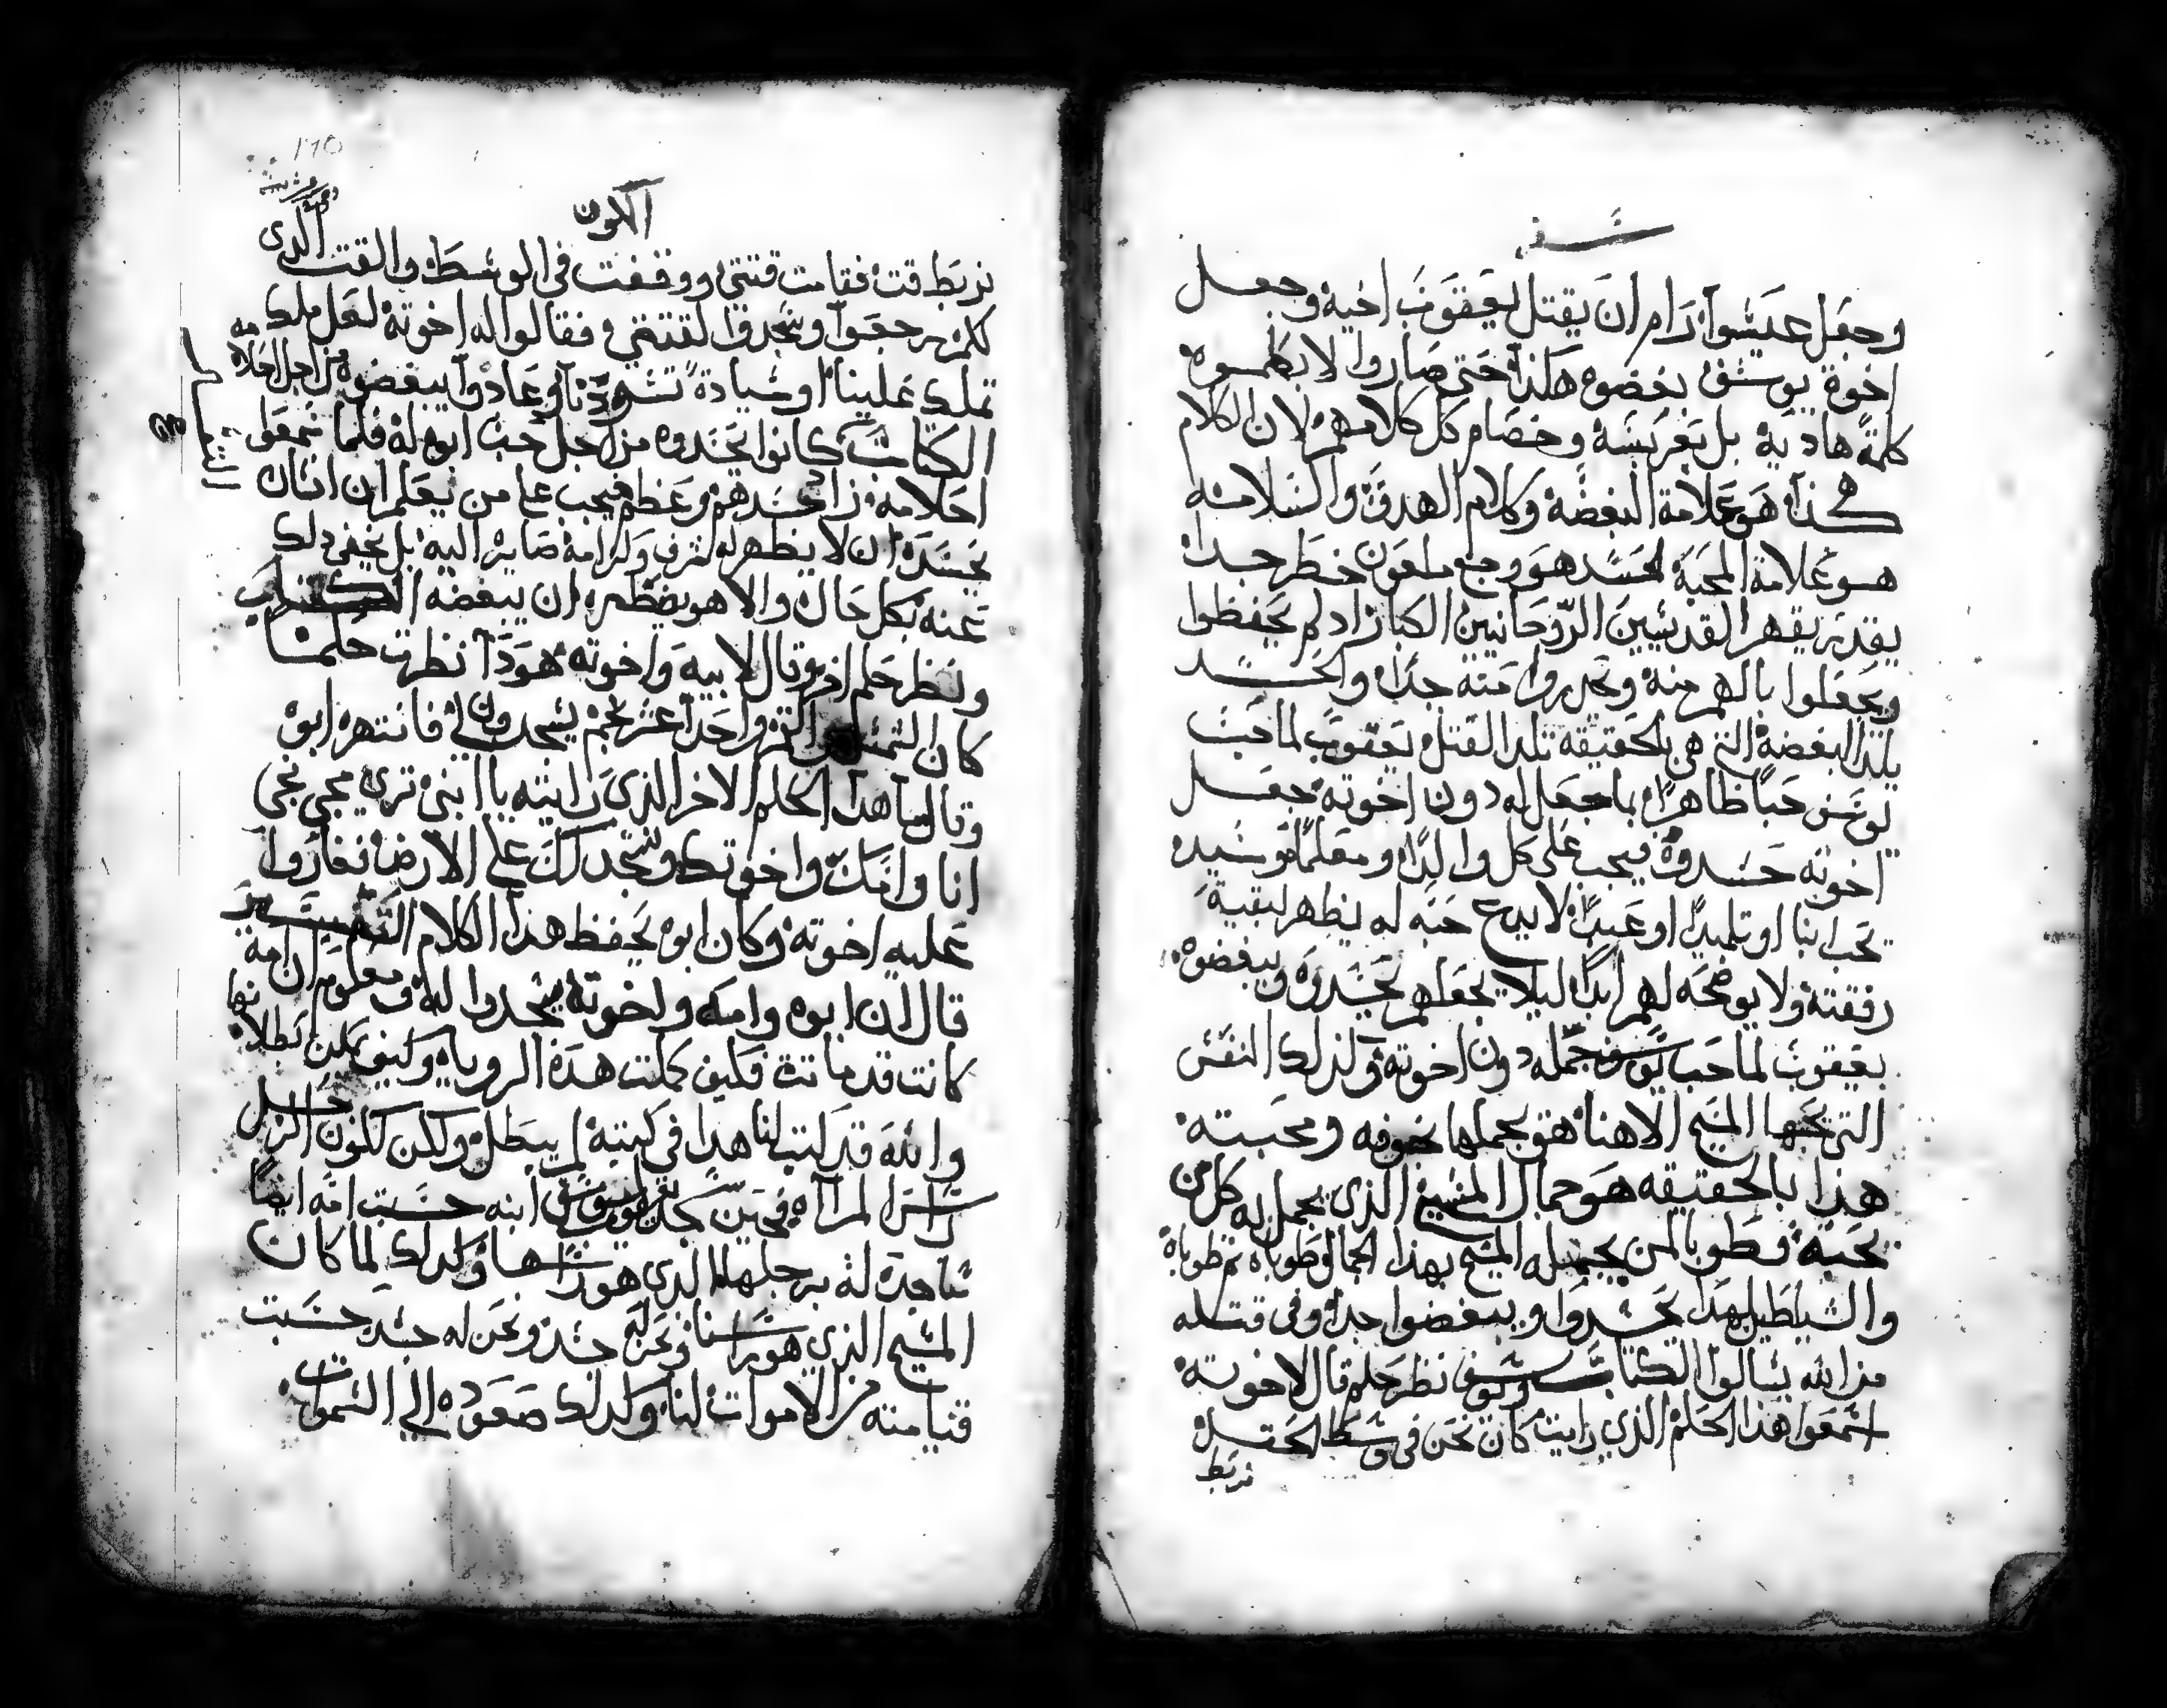 سفر
وجعل عيسوا رام ان يقتل يعقوب اخيه وجعل
اخوة يوسف بغضوه هكذا حتى صاروا لا يكلموه
كلمة هادية بل بعربسة وخصام كل كلامهم لان الكلام
كذا هو علامة البغضة وكلام الهدو والسلامه
هو علامة المحبة الحسد هو وجع ملعون خطر جدا
يقدر يقهر القديسين الروحانيين الكبار اد لم يحفظوا
ويجعلوا بالهم منه جدا والحسد
يلد البغضة التي هي بالحقيقه تلد القتل يعقوب لما حب
يوسف حبا ظاهرا باجعل له دون اخوته جعل
اخوته حسدوه فيجب على كل والدا ومعلما وسيد
يحب ابنا او تلميدا او عبدا لا يبيح حبه له يظهر لبقية
رفقته ولا يوضحه لهم ابدا ليلا يجعلهم يحسدوه ويبغضوه
يعقوب لما حب يوسف جمله دون اخوته ولذلك النفس
التي يحبها المسيح الاهنا هو يجملها بخوفه ومحبته
هذا بالحقيقه هو جمال المسيح الذي يجمل به كل من
يحبه فطوبا لمن يجمله المسيح بهذا الجمال وطوباه ثم طوباه
والشياطين لهذا يحسدوا ويبغضوا جدا وفي قتله
من الله يسالوا الكتاب ويوسف نظر حلم قال لاخوته
اسمعوا هذا الحلم الذي رايت كان نحن في وسط الحقل
نربط
١٦٥
الاون
نربط قت فقامت قتتي ووقفت في الوسط والقت الدى
لكم رجعوا وسجدوا لقتتي فقالوا له اخوته لعل ملك
تملك علينا او سيادة تسودنا وعادوا يبغضوه من اجل احلامه
الكتاب كانوا يحسدوه من اجل حب ابوه له فلما سمعوا
احلامه زاد حسدهم وعظم فيجب علي من يعلم ان انسان
يحسده ان لا يظهر له شرف وكرامة صايره اليه بل يخفي دلك
عنه بكل حال والا هو يضطره ان يبغضه الكتاب
ونظر حلم اخر وقال لابيه واخوته هودا نظرت حلما
كان الشمس والقمر واحد عشر نجم يسجدون لي فانتهره ابوه
وقال ما هدا الحلم الاخر الذي رايته يا ابني ترى مجي نجي
انا وامك واخوتك ونسجد لك على الارض فغاروا
عليه اخوته وكان ابوه يحفظ هدا الكلام التفسير
قال ان ابوه وامه واخوته يسجدوا له ومعلوم ان امه
كانت قد ماتت فكيف كملت هده الرويا وكيف يمكن بطلانها
والله قد كتب لنا هدا في كتبه لم يبطل ولكن لكون الرجل
راس المراه فحين سجد يعقوب ليوسف ابنه حسبت امه ايضا
ساجدة له برجلها الدي هو راسها وكدلك لما كان
المسيح الذي هو راسنا ونحن له جسد ونحن له جسد حسبت
قيامته من الاموات لنا وكدلك صعوده الي السموات